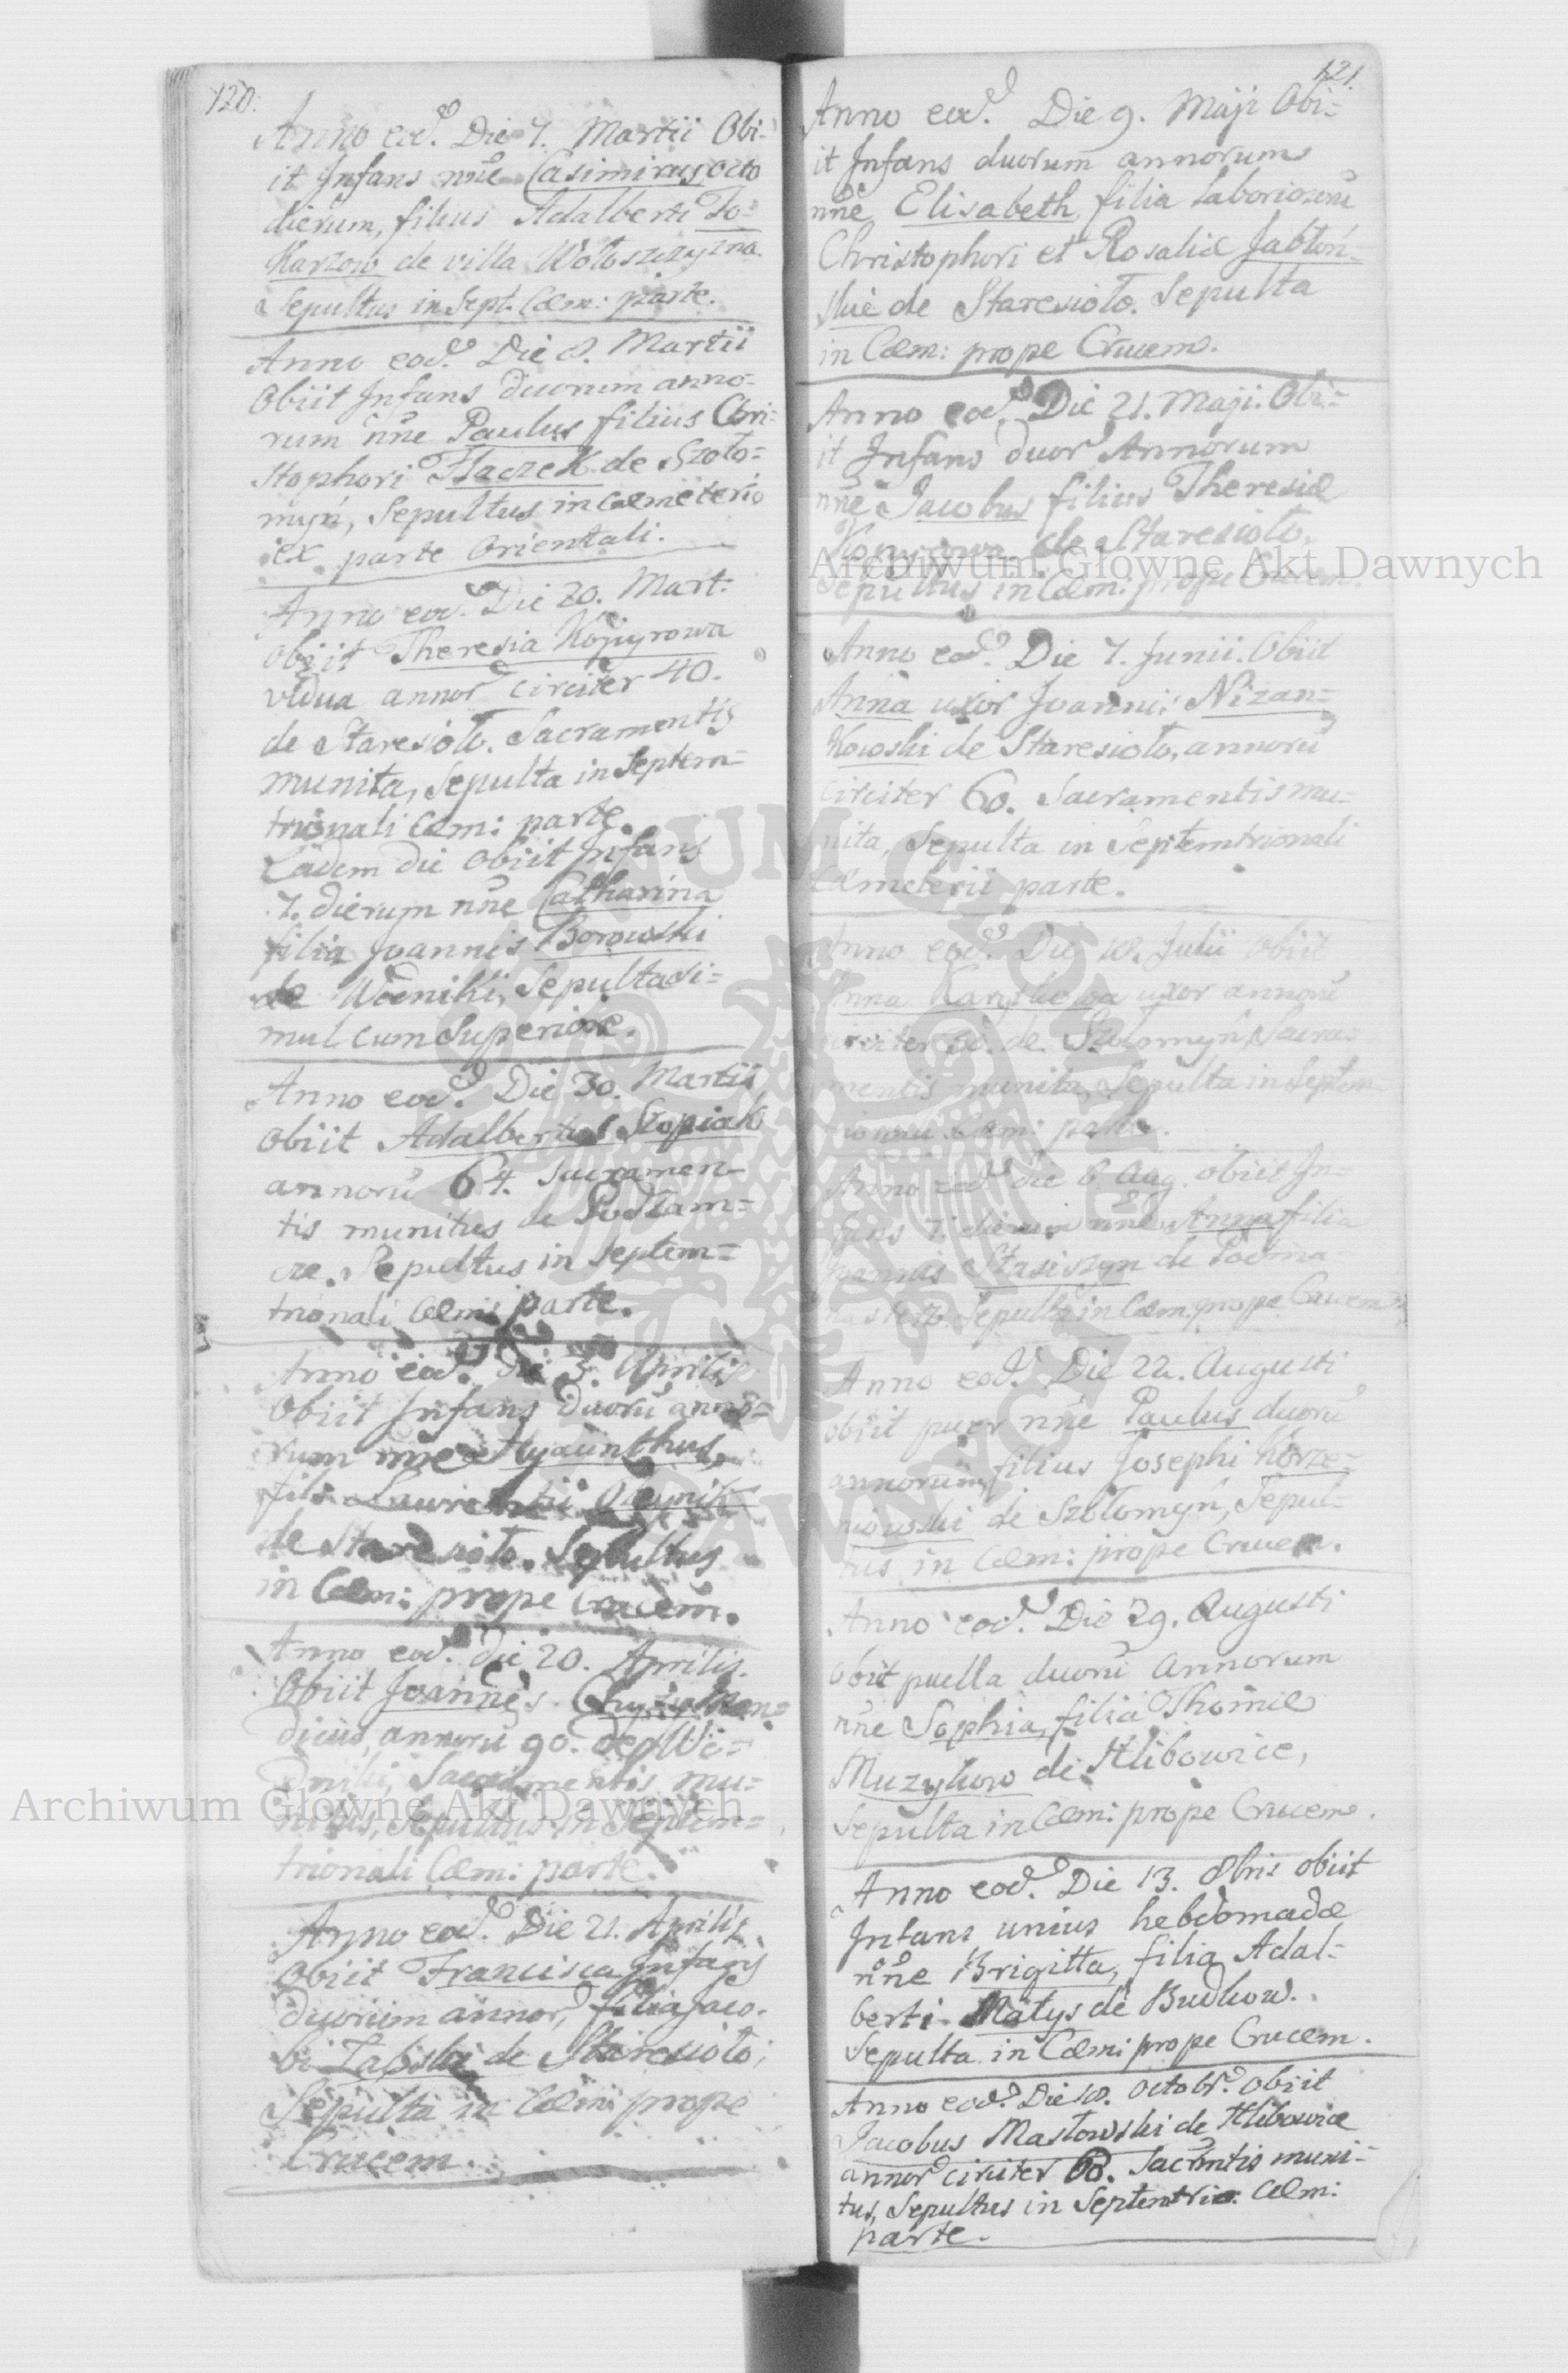 120.
Anno eod. Die 7. Martii Obi-
it Infans nñe Casimirus octo
dierum, filius Adalberti To-
karzow de villa Wołoszczyzna.
Sepultus in Sept. Cæm: parte.
Anno eod. Die 8. Martii
Obiit Infans duorum anno-
rum nñe Paulus filius Chri-
stophori Tkaczek de Szoło-
myń, Sepultus in Cæmeterio
ex parte Orientali.
Anno eod. Die 20. Mart.
obiit Theresia Kozyrowa
vidua annor circiter 40.
de Staresioło. Sacramentis
munita, Sepulta in Septem-
trionali Cæm: parte.
Eadem die obiit Infans
7. dierum nñe Catharina
filia Joannis Borowski
de Wodniki, Sepulta si-
mul cum Superiore.
Anno eod. Die 30. Martii
obiit Adalbertus Szopiak
annorũ 64. Sacramen-
tis munitus de Podiam-
cze. Sepultus in Septem-
trionali Cæm: parte.
Anno eod. die 3. Aprilis
Obiit Infans duorũ anno-
rum nñe Hyacinthus,
fils Laurentii
de Staresioło. Sepultus
in Cæm: prope Crucem.
Anno eod. die 20. Aprilis.
Obiit Joannes Men-
dicus, annorũ 90. de Wo-
dniki, Sacramentis mu-
nitus, Sepultus in Septem-
trionali Cæm: parte.
Anno eod. Die 21. Aprilis
Obiit Francisca Infans
duorum annor, filia Jaco-
bi Zabski de Staresioło;
Sepulta in Cæm: prope
Crucem.
121.
Anno eod. Die 9. Maji Obi-
it Infans duorum annorum
nñe Elisabeth filia Laboriosorũ
Christophori et Rosaliæ Jabłoń-
skie de Staresioło. Sepulta
in Cæm: prope Crucem.
Anno eod. Die 21. Maji. Obi-
it Infans duor Annorum
nñe Jacobus filius Theresiæ
Kozyrowa de Staresioło.
Sepultus in Cæm: prope Crucem.
Anno eod. Die 7. Junii. Obiit
Anna uxor Joannis Nizan-
kowski de Staresioło, annorũ
circiter 60. Sacramentis mu-
nita, Sepulta in Septemtrionali
Cæmeterii parte.
Anno eod. Die 18. Julii obiit
Anna uxor annorũ
circiter de Szołomyń, Sacra-
mentis munita, Sepulta in Septem-
Cæm: parte.
Anno eod die 6. Aug. obiit In-
fans 7. dierum nñe Anna filia
Joannis Stasiszyn de
Sepulta in Cæm: prope Crucem
Anno eod. Die 22. Augusti
obiit puer nñe Paulus duorũ
annorum, filius Josephi Korze-
niowski de Szołomyń, Sepul-
tus in Cæm: prope Crucem.
Anno eod. Die 29. Augusti
obiit puella duorũ Annorum
nñe Sophia, filia Thomæ
Muzykow de Hlibowice,
Sepulta in Cæm: prope Crucem.
Anno eod. Die 13. 8bris obiit
Infans unius hebdomadæ
nñe Brigitta, filia Adal-
berti Matys de Budkow.
Sepulta in Cæm: prope Crucem.
Anno eod. Die 18. Octobr. obiit
Jacobus Masłowski de Hlibowice
annor circiter 60. Sacrmtis muni-
tus, Sepultus in Septentrio: Cæm:
parte.
Archiwum Główne Akt Dawnych
Archiwum Główne Akt Dawnych